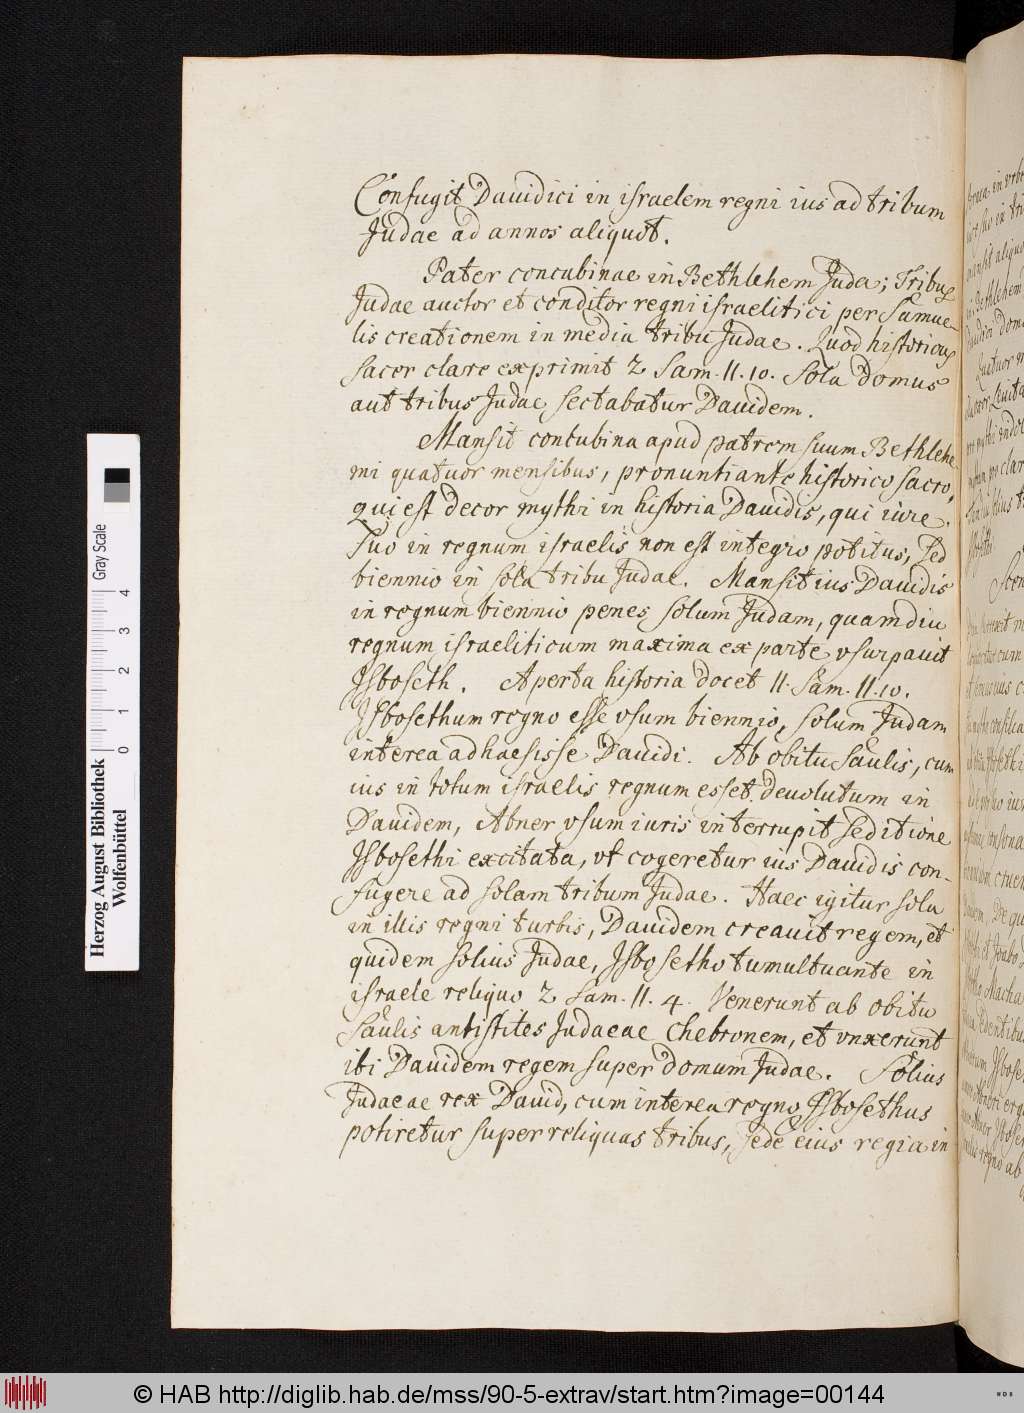 Confugit Dauidici in israelem regni ius ad tribum
Judae ad annos aliquot.
Pater concubinae in Bethlehem Juda; Tribus
Judae auctor et conditor regni israelitici per Samue-
lis creationem in media tribu Judae. Quod historicus
sacer clare exprimit 2 Sam. II. 10. Sola domus
aut tribus Judae sectabatur Dauidem.
Mansit concubina apud patrem suum Bethlehe-
mi quatuor mensibus, pronuntiante historico sacro,
qui est decor mythi in historia Dauidis, qui iure
suo in regnum israelis non est integro potitus, sed
biennio in sola tribu Judae. Mansit ius Dauidis
in regnum biennio penes solum Judam, quamdiu
regnum israeliticum maxima ex parte vsurpauit
Isboseth. Aperta historia docet II. Sam. II. 10.
Isbosethum regno esse vsum biennio, solum Judam
interea adhaesisse Dauidi. Ab obitu Saulis, cum
ius in totum israelis regnum esset deuolutum in
Dauidem, Abner vsum iuris interrupit seditione
Isbosethi excitata, vt cogeretur ius Dauidis con-
fugere ad solam tribum Judae. Haec igitur sola
in illis regni turbis, Dauidem creauit regem, et
quidem solius Judae, Isbosetho tumultuante in
israele reliquo 2 Sam. II. 4. Venerunt ab obitu
Saulis antistites Judaeae Chebronem, et vnxerunt
ibi Dauidem regem super domum Judae. Solius
Judaeae rex Dauid, cum interea regno Isbosethus
potiretur super reliquas tribus, sede eius regia in
Herzog August Bibliothek
Wolfenbüttel
0 1 2 3 4
Gray Scale
© HAB http://diglib.hab.de/mss/90-5-extrav/start.htm?image=00144